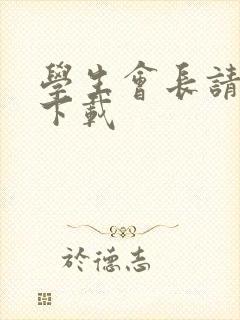 學生會長請
下載
於德志